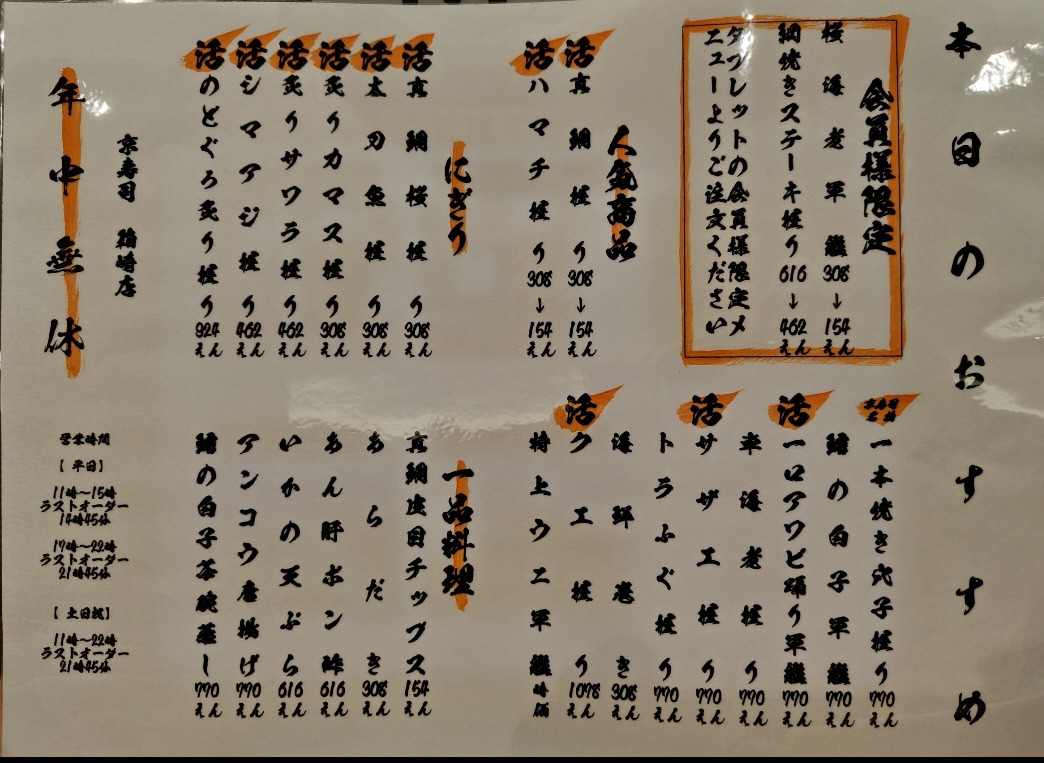 本日のおすすめ
会員様限定
桜海老軍艦308→154えん
網焼きステーキ握り616→462えん
タブレットの会員様限定メ
ニューよりご注文ください
人気商品
活真鯛握り308→154えん
活ハマチ握り308→154えん
にぎり
活真鯛桜握り308えん
活太刀魚握り308えん
活炙りカマス握り308えん
活炙りサワラ握り462えん
活シマアジ握り462えん
活のどぐろ炙り握り924えん
京寿司名物 一本焼き穴子握り770えん
鱈の白子軍艦770えん
活一口アワビ踊り軍艦770えん
車海老握り770えん
活サザエ握り770えん
トラふぐ握り770えん
海鮮巻き308えん
活クエ握り1078えん
特上ウニ軍艦時価
一品料理
真鯛皮目チップス154えん
あらだき308えん
あん肝ポン酢616えん
いかの天ぷら616えん
アンコウ唐揚げ770えん
鱈の白子茶碗蒸し770えん
京寿司 箱崎店
年中無休
営業時間
【平日】
11時～15時
ラストオーダー
14時45分
17時～22時
ラストオーダー
21時45分
【土日祝】
11時～22時
ラストオーダー
21時45分